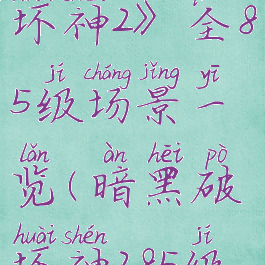 坏神2》全8
jí chǎng jǐng yī
5级场景一
lǎn àn hēi pò
览(暗黑破
huài shén jí
坏神285级